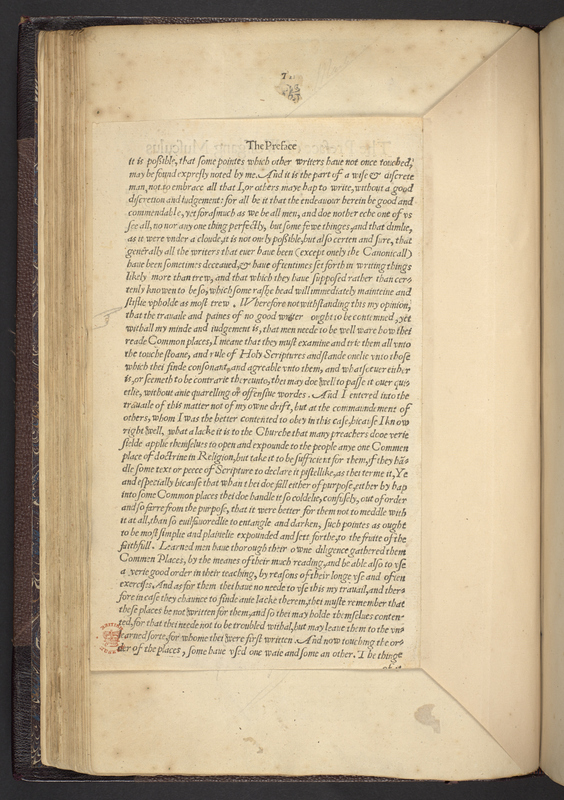 7.
The Preface
it is poſſible, that ſome pointes which other writers haue not once touched,
may be found expreſly noted by me. And it is the part of a wiſe & diſcrete
man, not to embrace all that I, or others maye hap to write, without a good
diſcretion and iudgement: for all be it that the endeauour herein be good and
commendable, yet foraſmuch as we be all men, and doe nother eche one of vs
ſee all, no nor any one thing perfectly, but ſome fewe thinges, and that dimlie,
as it were vnder a cloude, it is not onely poſſible, but alſo certen and ſure, that
generally all the writers that euer haue been (except onely the Canonicall)
haue been ſometimes deceaued, & haue oftentimes ſet forth in writing things
likely more than trew, and that which they haue ſuppoſed rather than cer-
tenly knowen to be ſo, which ſome raſhe head will immediately mainteine and
ſtiflie vpholde as moſt trew. Wherefore notwithſtanding this my opinion,
that the trauaile and paines of no good writer ought to be contemned, yet
withall my minde and iudgement is, that men neede to be well ware how thei
reade Common places, I meane that they muſt examine and trie them all vnto
the touche ſtoane, and rule of Holy Scriptures and ſtande onelie vnto thoſe
which thei finde conſonant, and agreable vnto them, and whatſoeuer either
is, or ſeemeth to be contrarie thereunto, thei may doe well to paſſe it ouer qui-
etlie, without anie quarelling or offenſiue wordes. And I entered into the
trauaile of this matter not of my owne drift, but at the commaundement of
others, whom I was the better contented to obey in this caſe, bicauſe I know
right well, what a lacke it is to the Churche that many preachers dooe verie
ſelde applie themſelues to open and expounde to the people anye one Common
place of doctrine in Religion, but take it to be ſufficient for them, if they hā-
dle ſome text or peece of Scripture to declare it piſtellike, as thei terme it, Ye
and eſpecially bicauſe that whan thei doe fall either of purpoſe, either by hap
into ſome Common places thei doe handle it ſo coldelie, confuſely, out of order
and ſo farre from the purpoſe, that it were better for them not to meddle with
it at all, than ſo euilfauoredlie to entangle and darken, ſuch pointes as ought
to be moſt ſimplie and plainelie expounded and ſett forthe, to the fruite of the
faithfull. Learned men haue thorough their owne diligence gathered them
Common Places, by the meanes of their much reading, and be able alſo to vſe
a verie good order in their teaching, by reaſons of their longe vſe and often
exerciſe. And as for them thei haue no neede to vſe this my trauail, and ther-
fore in caſe they chaunce to finde anie lacke therein, thei muſte remember that
theſe places be not written for them, and ſo thei may holde themſelues conten-
ted, for that thei neede not to be troubled withal, but may leaue them to the vn-
learned ſorte, for whome thei were firſt written. And now touching the or-
der of the places, ſome haue vſed one waie and ſome an other. The thinge